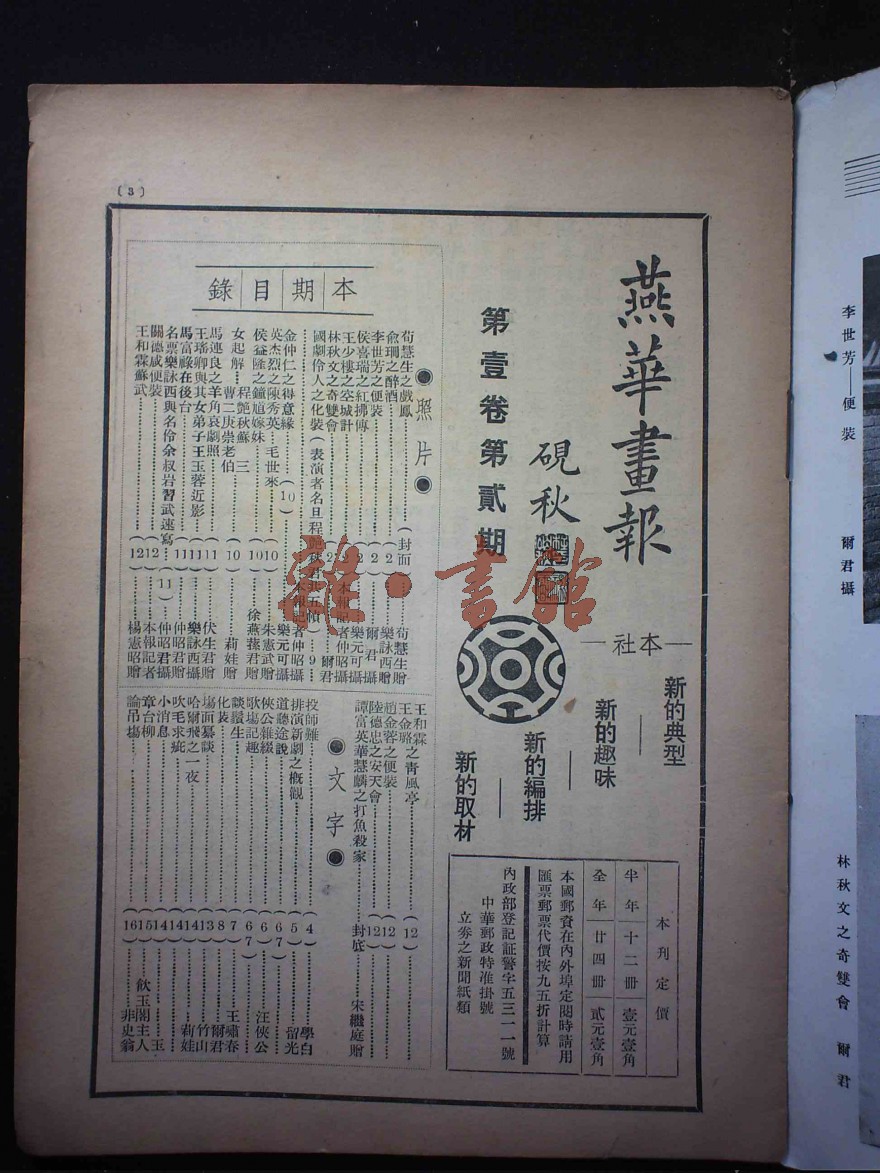 (3)
燕華畫報
硯秋
第壹卷第貳期
本社
新的典型
新的趣味
新的編排
新的取材
本刊定價
半年 十二冊 壹元壹角
全年 廿四冊 貳元壹角
本國郵資在內外埠定閱時請用
匯票郵票代價按九五折計算
內政部登記証警字五三一一號
中華郵政特准掛號
立劵之新聞紙類
本期目錄
●照片●
荀慧生之戲鳳(封面)荀慧生贈
俞珊之醉酒 2 樂詠西贈
李世芳之便裝 2 爾君攝
侯喜瑞之紅拂傳 2 樂元可攝
王少樓之空城計 2 本報記者仲昭攝
林秋文之奇雙會 2 爾君
國劇伶人之化裝(表演者名旦程艷秋君共五幀)9 本報記者仲昭攝
金仲仁之得意緣(10)樂元可攝
英杰烈之陳秀英 毛世來 10 朱憲武贈
侯益隆之鐘馗嫁妹 10 徐燕蓀君贈
女起解 程艷秋蘇三 曹二庚崇老伯 10 莉娃贈
馬連良之羊角哀劇照 11 伏生君贈
王瑤卿與其女弟子王玉蓉近影 11 樂詠西贈
馬富祿在後台 11 仲昭君贈
名票樂詠西與名伶余叔岩習武速寫(11)仲昭君攝
關德咸便裝 12 本報記者
王和霖蘇武 12 楊憲昭贈
王和霖之青風亭(12)
王金璐
趙金蓉之便裝 12
陸德忠之安天會 12
譚富英華慧麟之打魚殺家 封底 宋繼庭贈
●文字●
投師難(4)學白
排演新劇之概觀 5 留光
道聽途說 6 7
俠公雜綴 6 汪俠公
歌塲記趣(6 7)
談讚生 7 王嘯春
化裝 8 爾君
塲面纂談 13 竹山
哈爾飛之一夜 14 莉娃
吹毛求疵 14
小消息 14 玉
章台柳 15 飲玉閣主人
論吊塲(16)非史翁
雜·書館
李世芳——便裝 爾君攝
林秋文之奇雙會 爾君